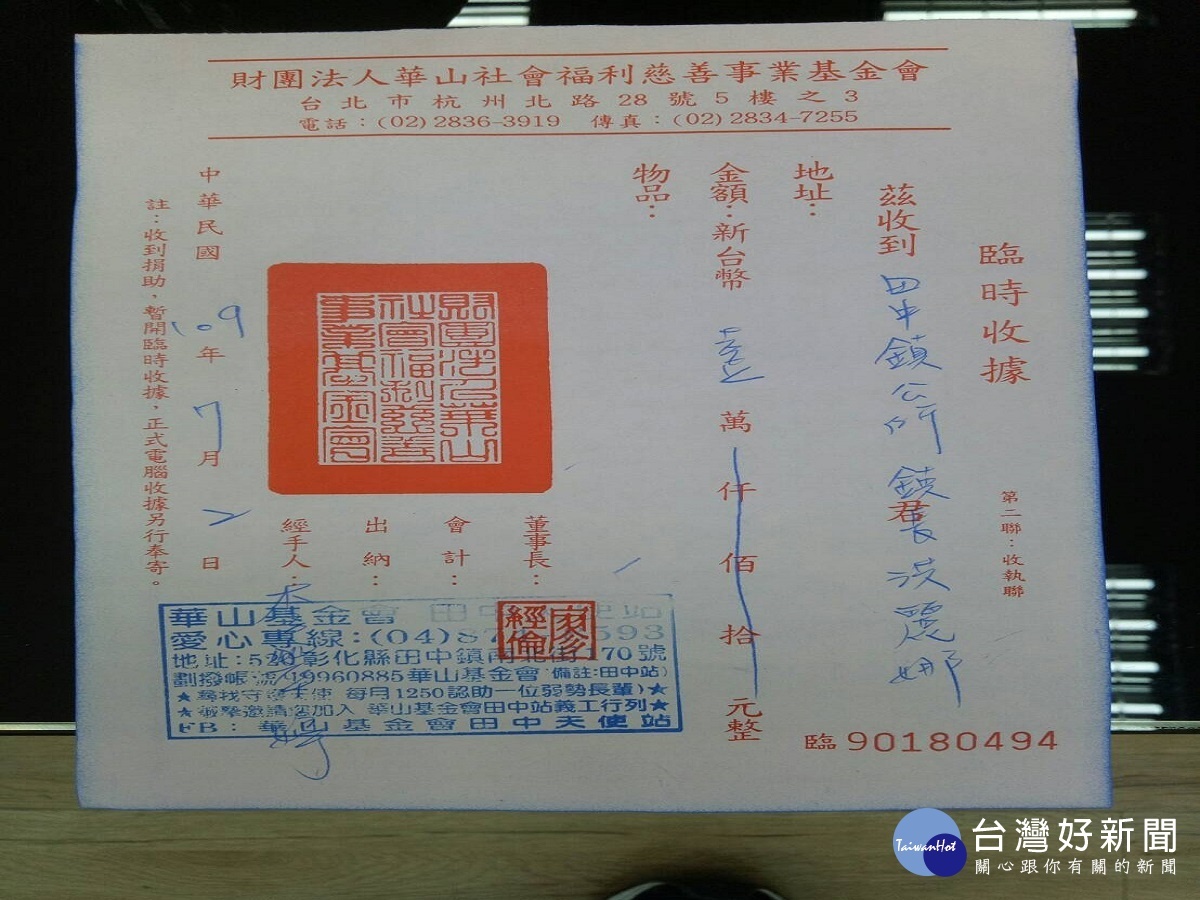 財團法人華山社會福利慈善事業基金會
台北市杭州北路28號5樓之3
電話：(02)2836-3919 傳真：(02)2834-7255
臨時收據
第二聯：收執聯
茲收到 田中鎮公所 鎮長洪麗娜 君
地址：
金額：新台幣 壹萬仟佰拾元整
物品：
財團法人華山社會福利慈善事業基金會
董事長：
會計：
出納：
經手人：
中華民國 109年7月2日
註：收到捐助，暫開臨時收據，正式電腦收據另行奉寄。
華山基金會 田中
愛心專線：(04)87 593
地址：520彰化縣田中鎮南北街170號
劃撥帳號：19960885華山基金會(備註:田中站)
每月1250認助一位弱勢長輩)★
邀請您加入 華山基金會田中站義工行列★
FB：華山基金會田中天使站
臨 90180494
台灣好新聞
TaiwanHot
關心跟你有關的新聞